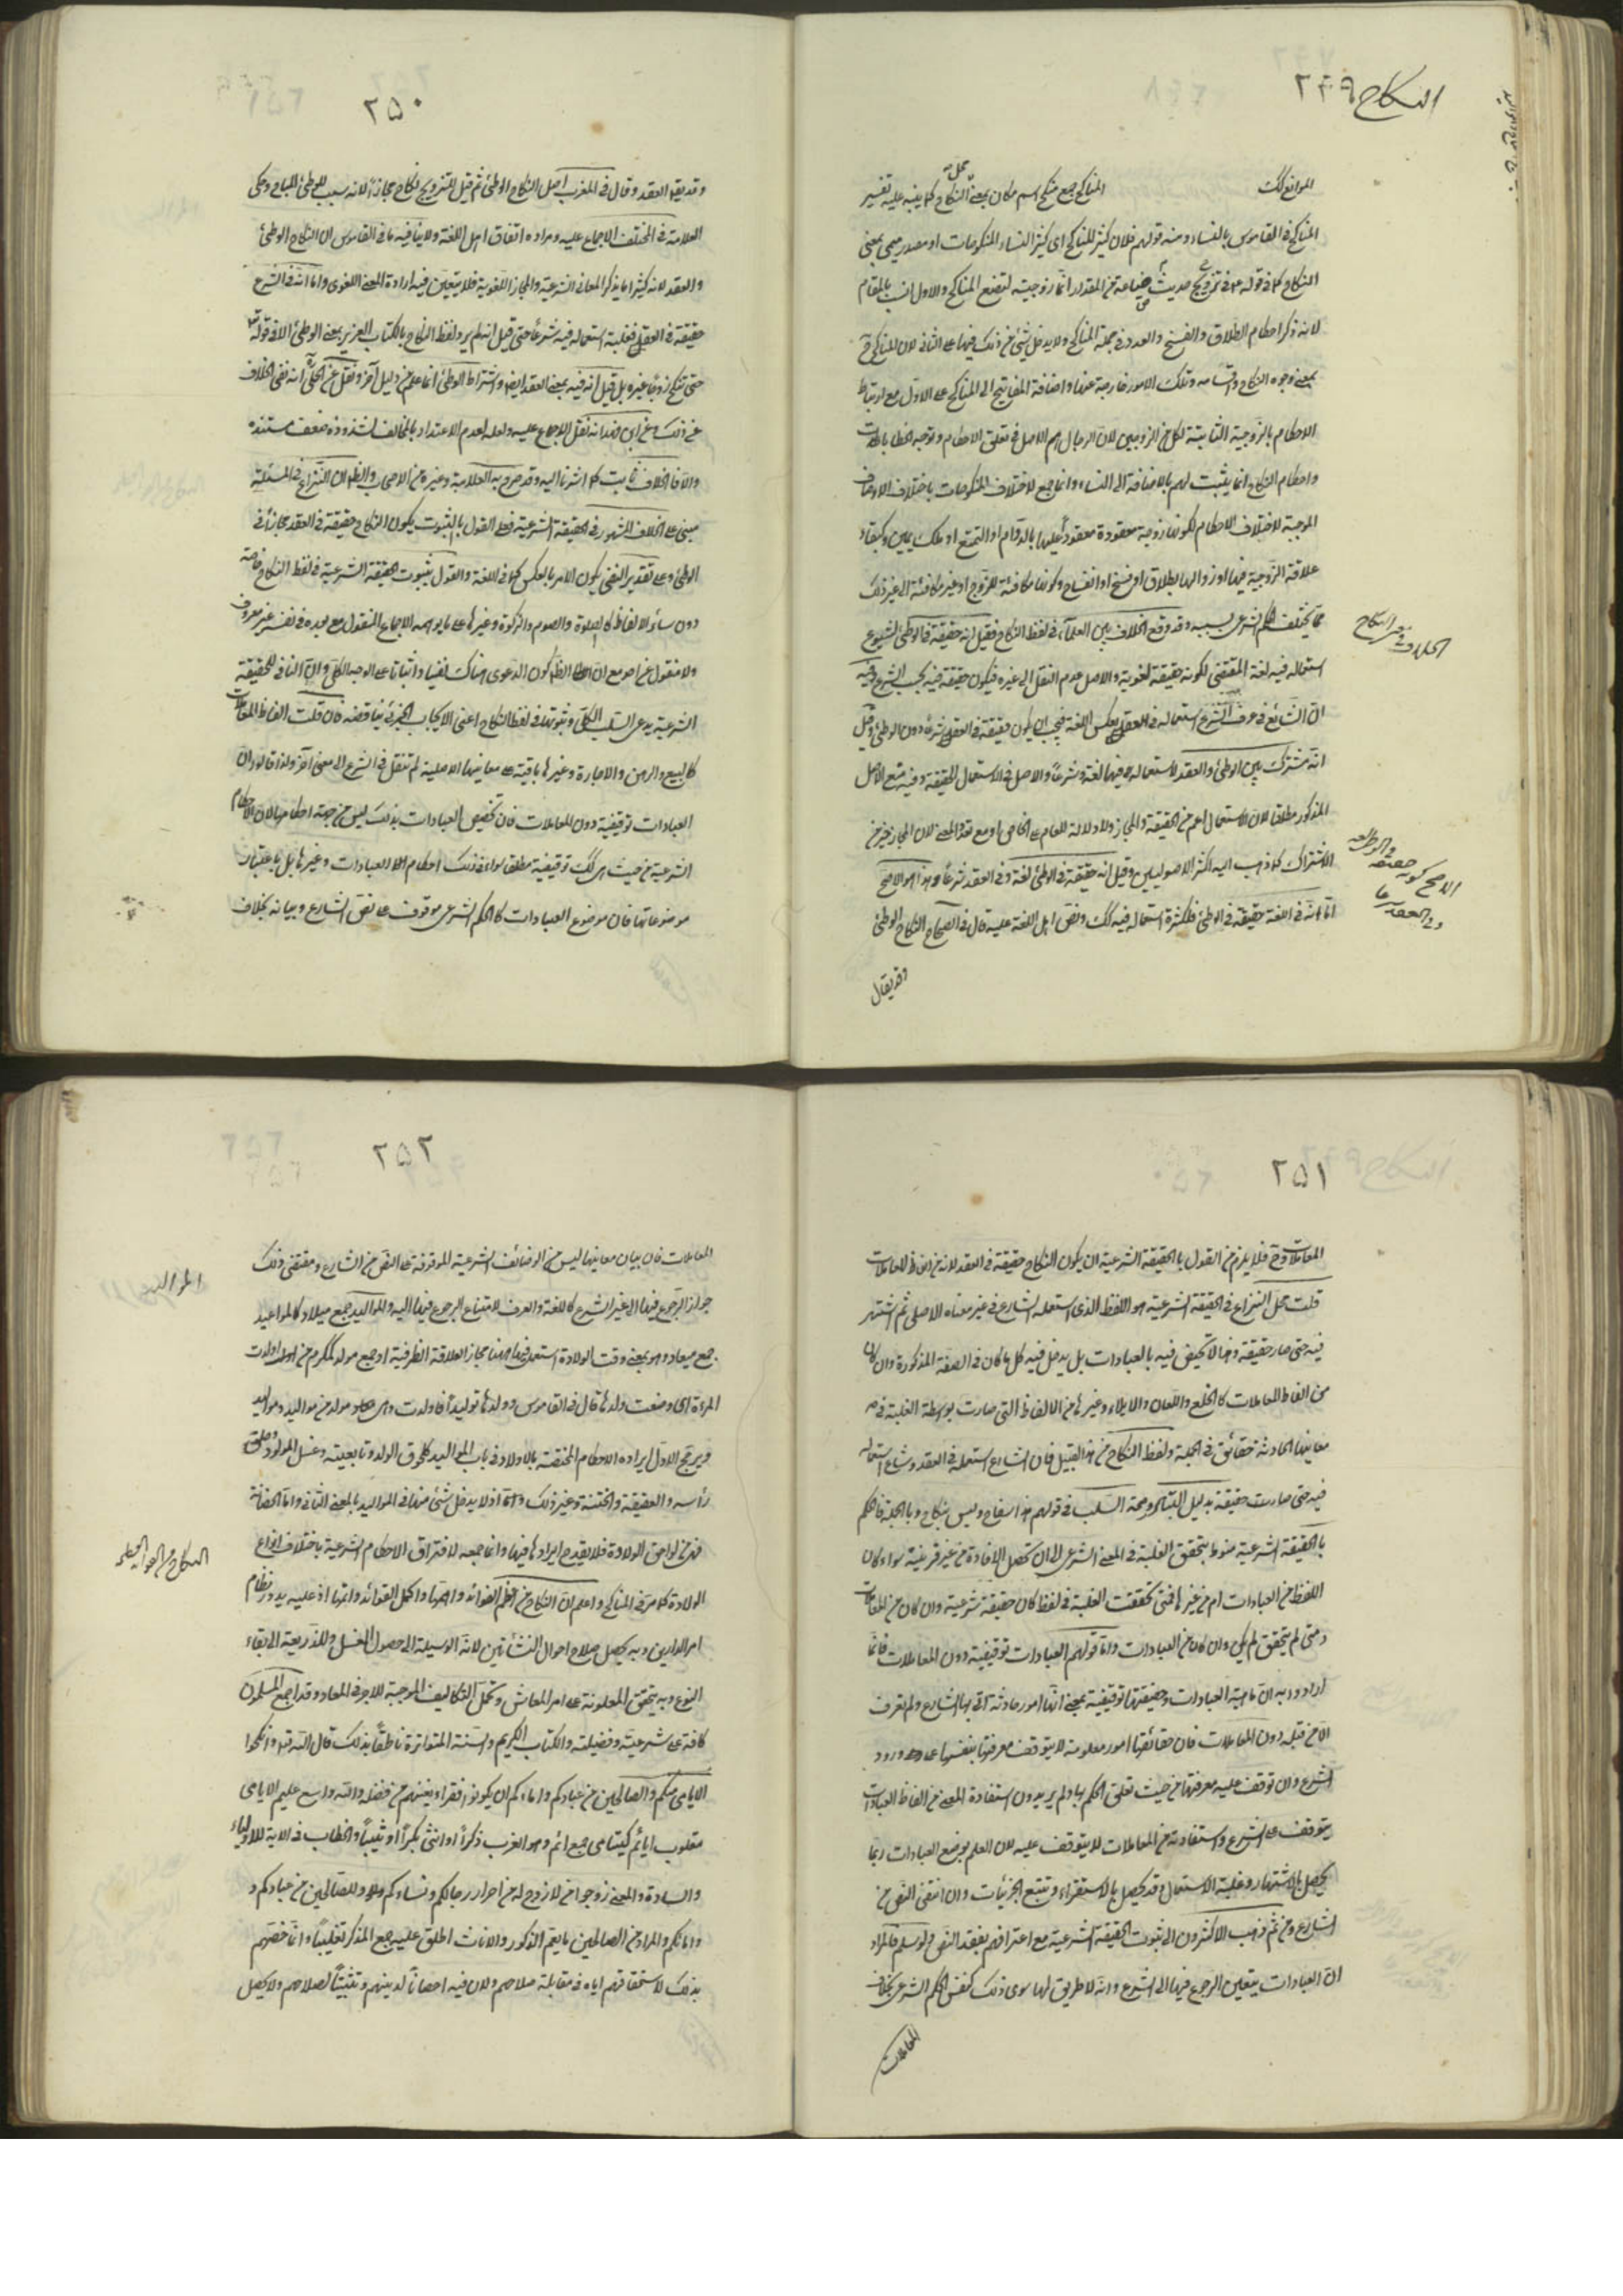 النكاح ٢٤٩
الموانع لك المناكح جمع منكح اسم مكان بمعنى محل النكاح كما ينبه عليه تفسير
المناكح في القاموس بالنساء ومنه قولهم فلان كثير المناكح اى كثير النساء المنكوحات او مصدر ميمى بمعنى
النكاح كما في قوله في تزويج لتضع المناكح والاول انسب بالمقام
لانه ذكر احكام الطلاق والفسخ والعدد في جملة المناكح ولا يدخل شئ من ذلك فيها على الثانى لان المناكح ح
بمعنى وجوه النكاح واقسامه وتلك الامور خارجة عنها واضافة المفاتيح الى المناكح على الاول مع ارتباط
الاحكام بالزوجية الثابتة لكل من الزوجين لان الرجال هم الاصل في تعلق الاحكام وتوجه الخطابات
واحكام النكاح انما يثبت لهم بالاضافة الى النساء وانما جمع لاختلاف المنكوحات باختلاف الاوصاف
الموجبة لاختلاف الاحكام لكونها زوجة معقودة معقود عليها بالدوام او التمتع او ملك يمين وكبقاء
علاقة الزوجية فيها او زوالها بطلاق او فسخ او انفساخ وكونها مكافئة للزوج او غير مكافئة الى غير ذلك
مما يختلف الحكم الشرعى بسببه وقد وقع الخلاف بين العلماء في لفظ النكاح فقيل انه حقيقة في الوطئ لشيوع
استعماله فيه لغة المقتضى لكونه حقيقة لغوية والاصل عدم النقل الى غيره فيكون حقيقة فيه بحسب الشرع وفيه
ان الشائع في عرف الشرع استعماله في العقد بعكس اللغة فيجب ان يكون حقيقة في العقد شرعا دون الوطئ وقيل
انه مشترك بين الوطئ والعقد لاستعماله فيهما لغة وشرعا والاصل في الاستعمال الحقيقة وفيه منع الاصل
المذكور مطلقا لان الاستعمال اعم من الحقيقة والمجاز ولا دلالة للعام على الخاص او مع تعدد المعنى لان المجاز خير من
الاشتراك كما ذهب اليه اكثر الاصوليين وقيل انه حقيقة في الوطئ لغة وفي العقد شرعا وهذا هو الاصح
اما انه في اللغة حقيقة في الوطئ فلكثرة استعماله فيه كك ونص اهل اللغة عليه قال في الصحاح النكاح الوطئ
وقد يقال
الخلاف في معنى النكاح
الاصح كونه حقيقة في الوطى لغة
وفي العقد شرعا
٢٥٠
وقد يقال العقد وقال في المغرب اصل النكاح الوطئ ثم قيل للتزويج نكاح مجازا لانه سبب للوطئ المباح وحكى
العلامة في المختلف الاجماع عليه ومراده اتفاق اهل اللغة ولا ينافيه ما في القاموس ان النكاح الوطئ
والعقد لانه كثيرا ما يذكر المعانى الشرعية والمجاز اللغوية فلا يتعين فيه ارادة المعنى اللغوى واما انه في الشرع
حقيقة في العقد فلغلبة استعماله فيه شرعا حتى قيل انه لم يرد لفظ النكاح بالكتاب العزيز بمعنى الوطئ الا في قوله تع
حتى تنكح زوجا غيره بل قيل انه فيه بمعنى العقد ايضا واشتراط الوطئ انما علم من دليل آخر ونقل عن الحلى ره انه نفى الخلاف
عن ذلك وعن ابن فهد انه نقل الاجماع عليه ولعله لعدم الاعتداد بالمخالف لشذوذه وضعف مستنده
والا فالخلاف ثابت كما اشرنا اليه وقد صرح به العلامة وغيره من الاصحاب والظاهر ان النزاع في المسئلة
مبنى على الخلاف المشهور في الحقيقة الشرعية فعلى القول بالثبوت يكون النكاح حقيقة في العقد مجازا في
الوطئ وعلى تقدير النفى يكون الامر بالعكس كما في اللغة والقول بثبوت الحقيقة الشرعية في لفظ النكاح خاصة
دون سائر الالفاظ كالصلوة والصوم والزكوة وغيرها على ما يوهمه الاجماع المنقول مع بعده في نفسه غير معروف
ولا منقول عن احد مع ان الظاهر كون الدعوى هناك نفيا واثباتا على الوجه الكلى وان النافى للحقيقة
الشرعية يدعى السلب الكلى وثبوتها في لفظ النكاح اعنى الايجاب الجزئى يناقضه فان قلت الفاظ المعاملات
كالبيع والرهن والاجارة وغيرها باقية على معانيها الاصلية لم تنقل في الشرع الى معنى آخر ولذا قالوا ان
العبادات توقيفية دون المعاملات فان تخصيص العبادات بذلك ليس من جهة احكامها لان الاحكام
الشرعية من حيث هى كك توقيفية مطلقا سواء في ذلك احكام العبادات وغيرها بل باعتبار
موضوعاتها فان موضوع العبادات كالحكم الشرعى موقوف على نص الشارع وبيانه بخلاف
٢٥١
المعاملات وح فلا يلزم من القول بالحقيقة الشرعية ان يكون النكاح حقيقة في العقد لانه من الفاظ المعاملات
قلت محل النزاع في الحقيقة الشرعية هو اللفظ الذى استعمله الشارع في غير معناه الاصلى ثم اشتهر
فيه حتى صار حقيقة وهذا لا تخصيص فيه بالعبادات بل يدخل فيه كل ما كان في الصفة المذكورة وان كان
من الفاظ المعاملات كالخلع واللعان والايلاء وغيرها من الالفاظ التى صارت بواسطة الغلبة في
معانيها الحادثة حقائق في الجملة ولفظ النكاح من هذا القبيل فان الشارع استعمله في العقد وشاع استعماله
فيه حتى صارت حقيقة بدليل التبادر وصحة السلب في قولهم هذا سفاح وليس بنكاح وبالجملة فالحكم
بالحقيقة الشرعية منوط بتحقق الغلبة في المعنى الشرعى الى ان تحصل الافادة من غير قرينة سواء كان
اللفظ من العبادات ام من غيرها فمتى تحققت الغلبة في لفظ كان حقيقة شرعية وان كان من المعاملات
ومتى لم يتحقق لم يكن وان كان من العبادات واما قولهم العبادات توقيفية دون المعاملات فانما
ارادوا به ان ماهية العبادات وحقيقتها توقيفية بمعنى انها امور حادثة اتى بها الشارع ولم تعرف
الا من قبله دون المعاملات فان حقائقها امور معلومة لا يتوقف معرفتها بنفسها على ورود
الشرع وان توقف عليه معرفتها من حيث تعلق الحكم بها ولم يريدون استفادة المعنى من الفاظ العبادات
يتوقف على الشرع واستفادته من المعاملات لا يتوقف عليه لان العلم بوضع العبادات ربما
يحصل بالاشتهار وغلبة الاستعمال وقد يحصل بالاستقراء وتتبع الجزئيات وان انتفى النص من
الشارع ومن ثم ذهب الاكثرون الى ثبوت الحقيقة الشرعية مع اعترافهم بفقد النص ولو سلم فالمراد
ان العبادات يتعين الرجوع فيها الى الشرع وانه لا طريق لها سوى ذلك كنفس الحكم الشرعى بخلاف
المعاملات
٢٥٢
المعاملات فان بيان معانيها ليس من الوظائف الشرعية الموقوفة على النص من الشارع ومقتضى ذلك
جواز الرجوع فيها الى غير الشرع كاللغة والعرف لا امتناع الرجوع فيها اليه والمواليد جمع ميلاد كالمواعيد
جمع ميعاد وهو بمعنى وقت الولادة استعمل فيما هنا مجازا لعلاقة الظرفية او جمع مولد كمكرم من اولدت
المرءة اى وضعت ولدها قال في القاموس وولدها توليدا فاولدت وهى مولد من مواليد وموالد
ويرجح الاول ايراده الاحكام المختصة بالاولاد في باب المواليد كلحوق الولد وتابعيته وغسل المولود وحلق
رأسه والعقيقة والختنة وغير ذلك اذ لا يدخل شئ منها في المواليد بالمعنى الثانى واما الحضانة
فهى من لواحق الولادة فلا يقدح ايرادها فيها وانما جمعه لافتراق الاحكام الشرعية باختلاف انواع
الولادة كما مر في المناكح واعلم ان النكاح من اعظم الفوائد واهمها واكمل القوائد واتمها اذ عليه يدور نظام
امر الدارين وبه يحصل صلاح احوال النشأتين لانه الوسيلة الى حصول النسل والذريعة الى بقاء
النوع وبه يتحقق المعاونة على امر المعاش وتحمل التكاليف الموجبة للاجر في المعاد وقد اجمع المسلمون
كافة على شرعيته وفضيلته والكتاب الكريم والسنة المتواترة ناطقا بذلك قال الله تع وانكحوا
الايامى منكم والصالحين من عبادكم وامائكم ان يكونوا فقراء يغنهم من فضله والله واسع عليم الايامى
مقلوب ايائم كيتامى جمع ايم وهو العزب ذكرا او انثى بكرا او ثيبا والخطاب في الآية للاولياء
والسادة والمعنى زوجوا من لا زوج له من احرار رجالكم ونساءكم والصالحين من عبادكم و
وامائكم والمراد من الصالحين ما يعم الذكور والاناث اطلق عليه جمع المذكر تغليبا وانما خصهم
بذلك لاستحقاقهم اياه في مقابلة صلاحهم ولان فيه احصانا لدينهم وتثبيتا لصلاحهم ولا يحصل
المواليد